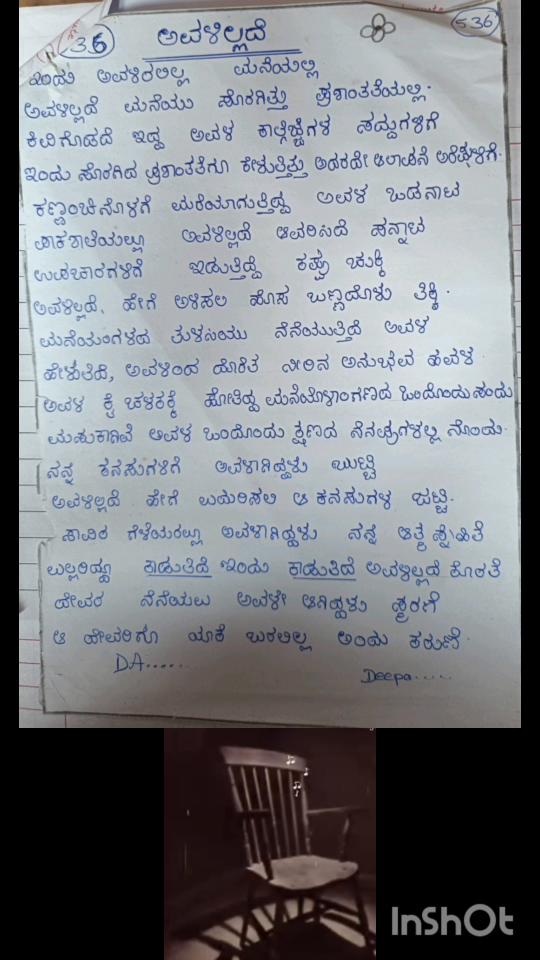 36
ಅವಳಿಲ್ಲದೆ
536
ಇಂದು ಅವಳಿರಲಿಲ್ಲ ಮನೆಯಲ್ಲಿ
ಅವಳಿಲ್ಲದೆ ಮನೆಯು ಸೊರಗಿತ್ತು ಪ್ರಶಾಂತತೆಯಲ್ಲಿ.
ಕಿವಿಗೊಡದೆ ಇದ್ದ ಅವಳ ಕಾಲ್ಗೆಜ್ಜೆಗಳ ಸದ್ದುಗಳಿಗೆ
ಇಂದು ಸೊರಗಿದ ಪ್ರಶಾಂತತೆಗೂ ಕೇಳುತ್ತಿತ್ತು ಅದರದೇ ಆಲಾಪನೆ
ಕಣ್ಣಂಚಿನೊಳಗೆ ಮರೆಯಾಗುತ್ತಿದ್ದ ಅವಳ ಒಡನಾಟ
ಪಾಕಶಾಲೆಯಲ್ಲೂ ಅವಳಿಲ್ಲದೆ ಆವರಿಸಿದೆ ಪನ್ನಾಟ
ಉಪಚಾರಗಳಿಗೆ ಇಡುತ್ತಿದ್ದೆ ಕಪ್ಪು ಚುಕ್ಕಿ
ಅವಳಿಲ್ಲದೆ, ಹೇಗೆ ಅಳಿಸಲಿ ಹೊಸ ಬಣ್ಣದೊಳು ತಿಕ್ಕಿ.
ಮನೆಯಂಗಳದ ತುಳಸಿಯು ನೆನೆಯುತ್ತಿದೆ ಅವಳ
ಹೇಳುತಿದೆ, ಅವಳಿಂದ ದೊರೆತ ನೀರಿನ ಅನುಭವ ಹವಳ
ಅವಳ ಕೈ ಚಳಕಕ್ಕೆ ಹೋಲಿದ್ದ ಮನೆಯೊಳಾಂಗಣದ ಒಂದೊಂದು
ಮಡುಕಾಗಿವೆ ಅವಳ ಒಂದೊಂದು ಕ್ಷಣದ ನೆನಪುಗಳಲ್ಲಿ ನೊಂದು.
ನನ್ನ ಕನಸುಗಳಿಗೆ ಅವಳಾಗಿದ್ದಳು ಬುಟ್ಟಿ
ಅವಳಿಲ್ಲದೆ ಹೇಗೆ ಬರೆಸಲಿ ಆ ಕನಸುಗಳ ಪಟ್ಟಿ.
ಸಾವಿರ ಗೆಳೆಯರಲ್ಲೂ ಅವಳಾಗಿದ್ದಳು ನನ್ನ ಆತ್ಮ ಸ್ನೇಹಿತೆ
ಎಲ್ಲರಿದ್ದೂ ಕಾಡುತಿದೆ ಇಂದು ಕಾಡುತಿದೆ ಅವಳಿಲ್ಲದೆ ಕೊರತೆ
ದೇವರ ನೆನೆಯಲು ಅವಳೇ ಆಗಿದ್ದಳು ಸ್ಮರಣೆ
ಆ ದೇವರಿಗೂ ಯಾಕೆ ಬರಲಿಲ್ಲ ಅಂದು ಕರುಣೆ.
D.A......
Deepa.....
InShOt